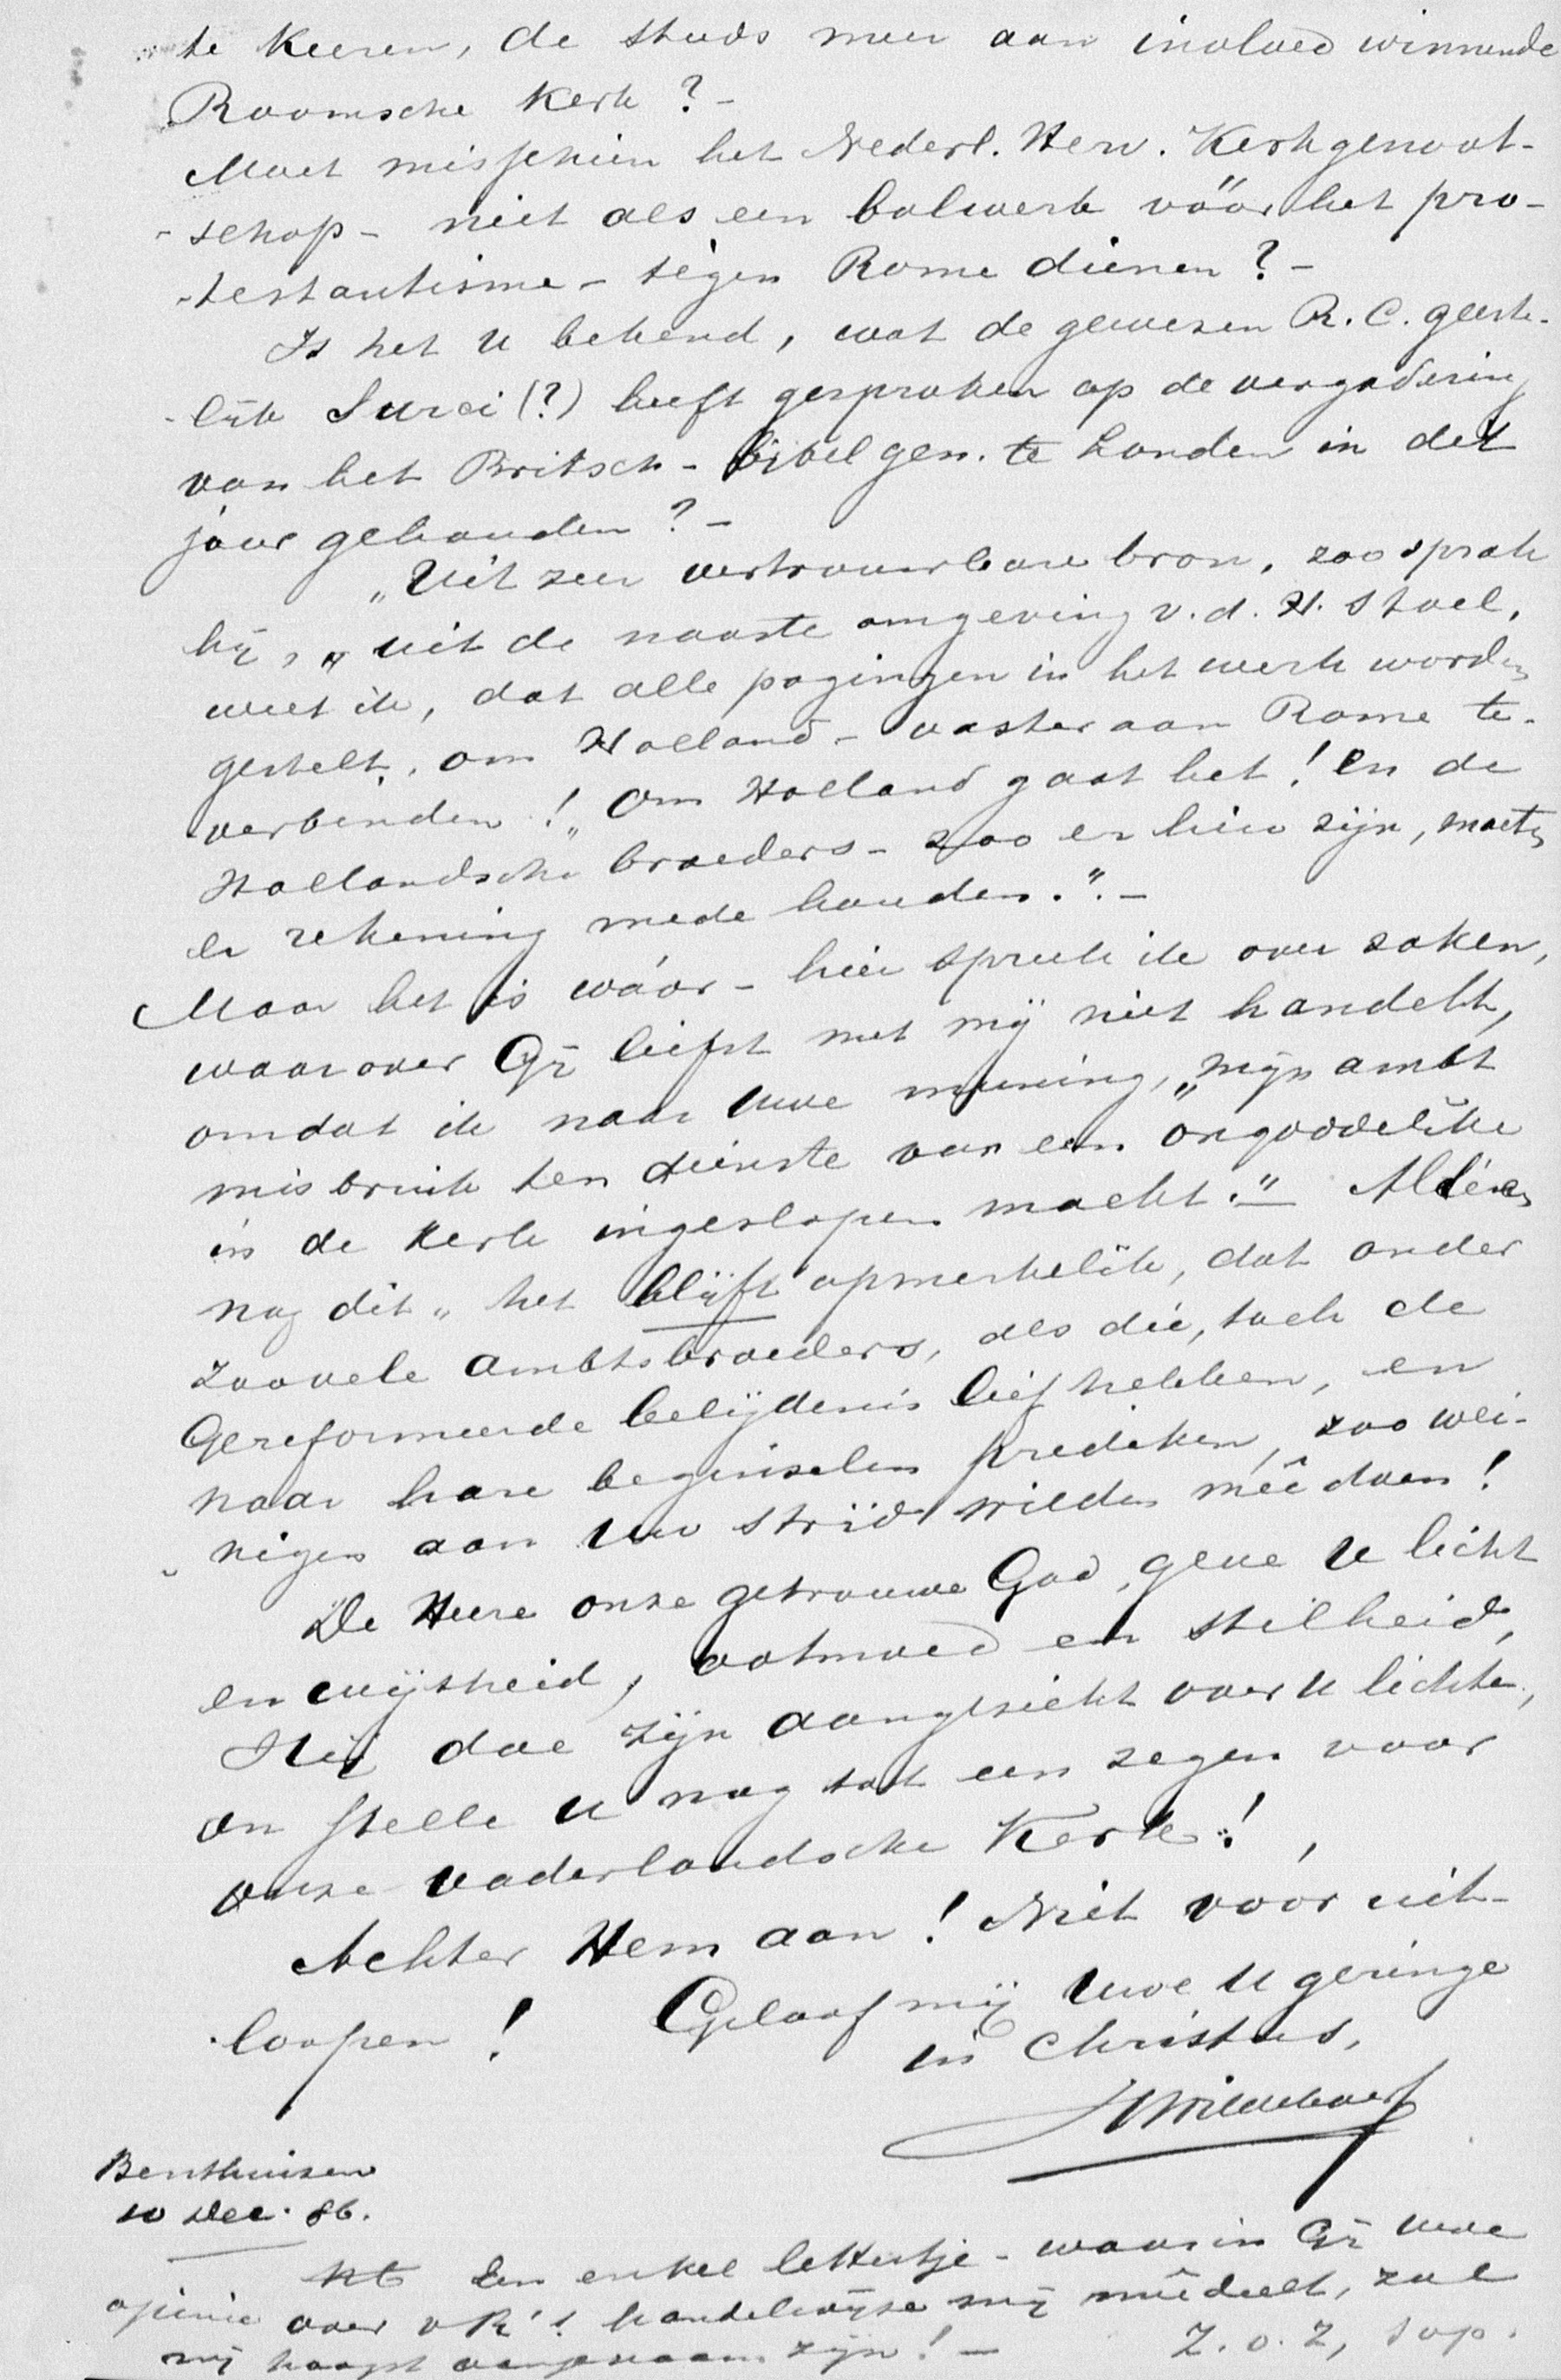 te keeren, de steeds meer aan invloed winnende
Roomsche Kerk? -
Moet misschien het Nederl. Herv. Kerkgenoot-
- schap - niet als een bolwerk vóór het pro-
- testantisme - tégen Rome dienen? -
Is het U bekend, wat de gewezen R. C. geeste-
- lijk (?) heeft gesproken op de vergadering
van het Britsch - bijbelgen. te Londen in dit
jaar gehouden? -
„Uit zeer vertrouwbare bron, zoo sprak
hij, „uit de naaste omgeving v. d. H. Stoel,
weet ik, dat alle pogingen in het werk worden
gestelt, om Holland - vaster aan Rome te-
verbinden! „Om Holland gaat het! en de
Hollandsche broeders - zoo er hier zijn, moeten
er rekening mede houden." -
Maar het is wáár - hier spreek ik over zaken,
waarover Gij liefst met mij niet handelt,
omdat ik naar Uwe meening, „mijn ambt
misbruik ten dienste van een ongoddelijke
in de Kerk ingeslopen macht." - Alléén
nog dit „het blijft opmerkelijk, dat onder
zoovele ambtsbroeders, als die, toch de
Gereformeerde belijdenis liefhebben, en
naar hare beginselen prediken, zoo wei-
- nigen aan Uw strijd wilden meê doen!
De Heere onze getrouwe God, geve U licht
en wijsheid, ootmoed en stilheid,
Hij doe zijn aangezicht over U lichten,
en stelle U nog tot een zegen voor
onze vaderlandsche Kerk!
Achter Hem aan! Niet vóór uit-
loopen! Geloof mij Uwe U geringe
in Christus,
JWildeboer
Benthuizen
10 Dec. 86.
Een enkel lettertje - waarin Gij Uwe
opinie over v R's handelwijze mij meêdeelt, zal
mij hoogst aangenaam zijn! - Z. o. Z, s v p.